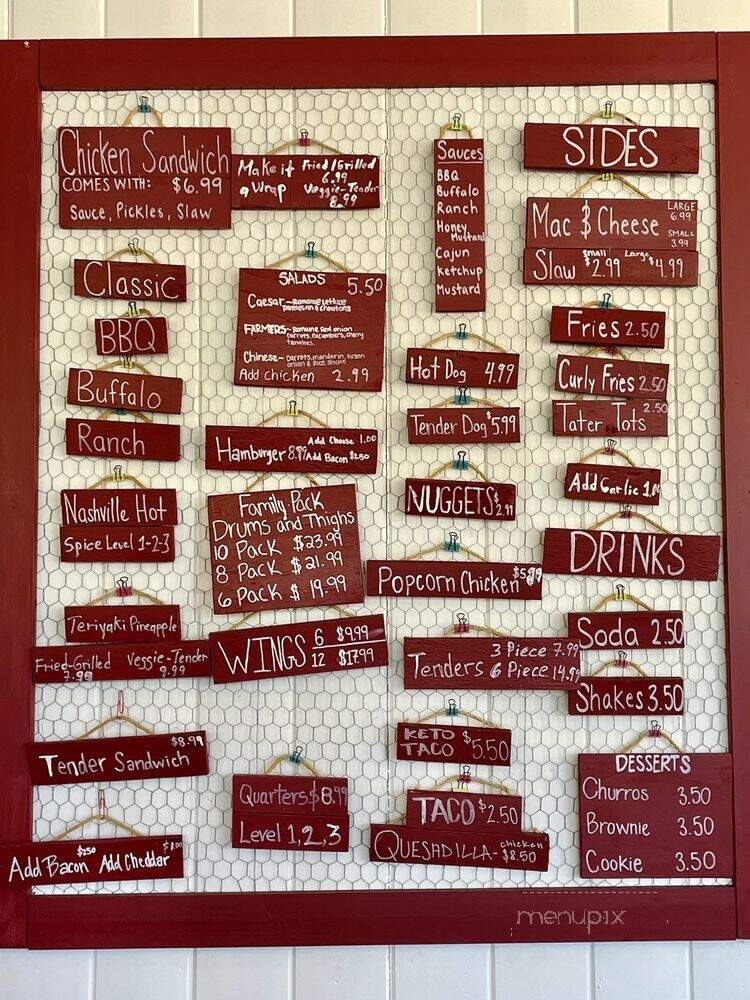 Chicken Sandwich
COMES WITH: $6.99
Sauce, Pickles, Slaw
Classic
BBQ
Buffalo
Ranch
Nashville Hot
Spice Level 1-2-3
Teriyaki Pineapple
Fried-Grilled Veggie-Tender
7.99 8.99
Tender Sandwich $8.99
Add Bacon $2.50 Add Cheddar
Make it Fried/Grilled
6.99
a Wrap Veggie-Tender
8.99
SALADS 5.50
Caesar~Romaine lettuce
parmesan & croutons
FARMERS~Romaine Red onion
carrots, cucumbers, cherry
tomatoes.
Chinese~carrots, mandarin, green
onion & rice sticks
Add chicken 2.99
Hamburger 8.99 Add Cheese 1.00
Add Bacon $2.50
Family Pack
Drums and Thighs
10 Pack $23.99
8 Pack $21.99
6 Pack $19.99
WINGS 6 $9.99
12 $17.99
Quarters $8.99
Level 1,2,3
Sauces
BBQ
Buffalo
Ranch
Honey
Mustard
Cajun
Ketchup
Mustard
Hot Dog 4.99
Tender Dog $5.99
NUGGETS
Popcorn Chicken $5.99
Tenders 3 Piece 7.99
6 Piece 14.99
KETO
TACO $5.50
TACO $2.50
QUESADILLA- chicken
$8.50
SIDES
Mac & Cheese LARGE
6.99
SMALL
3.99
Slaw Small $2.99 Large $4.99
Fries 2.50
Curly Fries 2.50
Tater Tots 2.50
Add Garlic
DRINKS
Soda 2.50
Shakes 3.50
DESSERTS
Churros 3.50
Brownie 3.50
Cookie 3.50
menupix